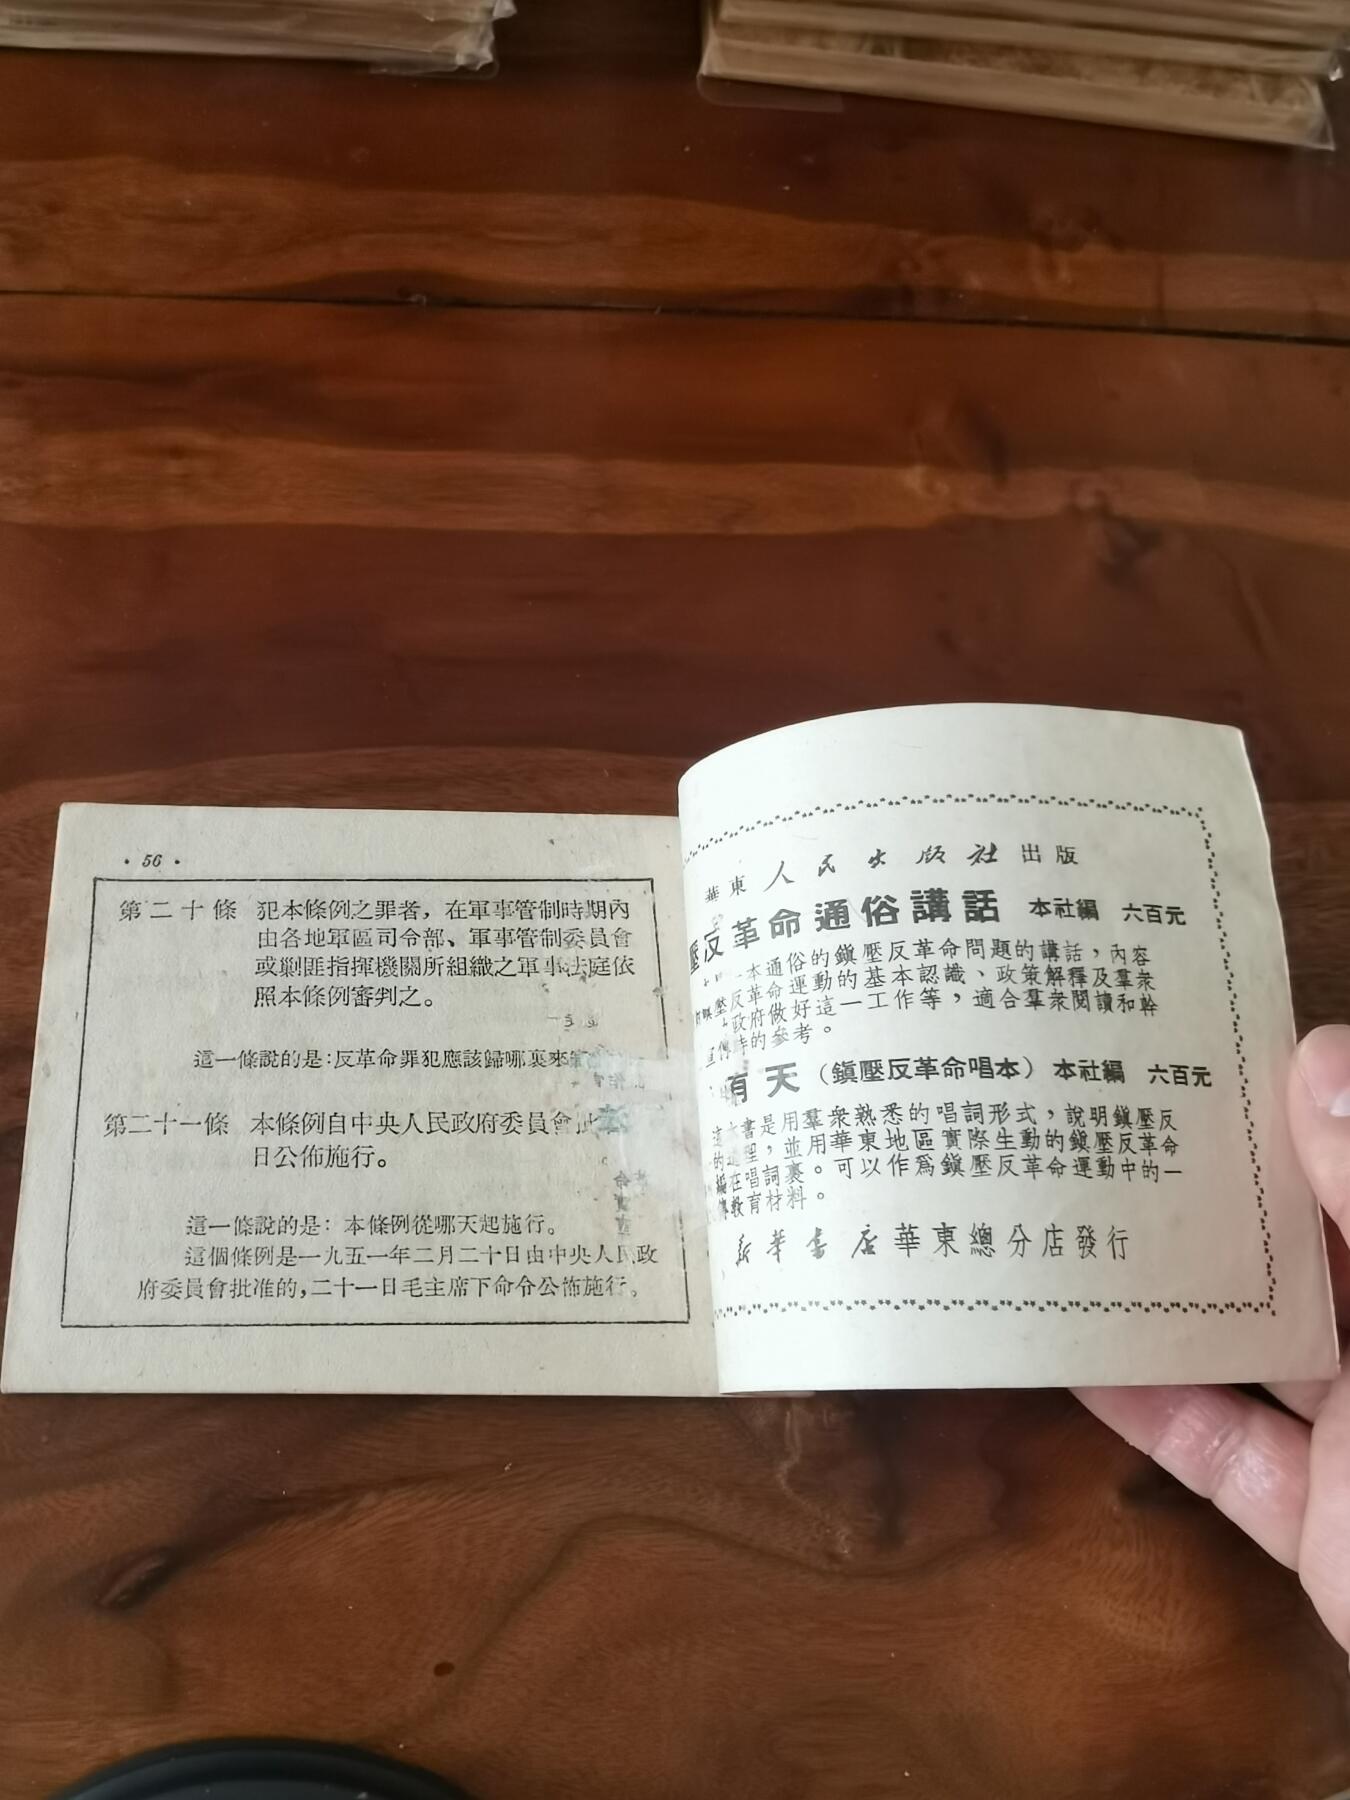 · 56 ·
第二十條 犯本條例之罪者，在軍事管制時期內
由各地軍區司令部、軍事管制委員會
或剿匪指揮機關所組織之軍事法庭依
照本條例審判之。
這一條說的是：反革命罪犯應該歸哪裏來
第二十一條 本條例自中央人民政府委員會
日公佈施行。
這一條說的是：本條例從哪天起施行。
這個條例是一九五一年二月二十日由中央人民政
府委員會批准的，二十一日毛主席下命令公佈施行。
華東人民出版社出版
壓反革命通俗講話 本社編 六百元
一本通俗的鎮壓反革命問題的講話，內容
反革命運動的基本認識、政策解釋及羣衆
政府做好這一工作等，適合羣衆閱讀和幹
宣傳時的參考。
有天（鎮壓反革命唱本） 本社編 六百元
這本書是用羣衆熟悉的唱詞形式，說明鎮壓反
的道理，並用華東地區實際生動的鎮壓反革命
編在唱詞裏。可以作爲鎮壓反革命運動中的一
教育材料。
新華書店華東總分店發行